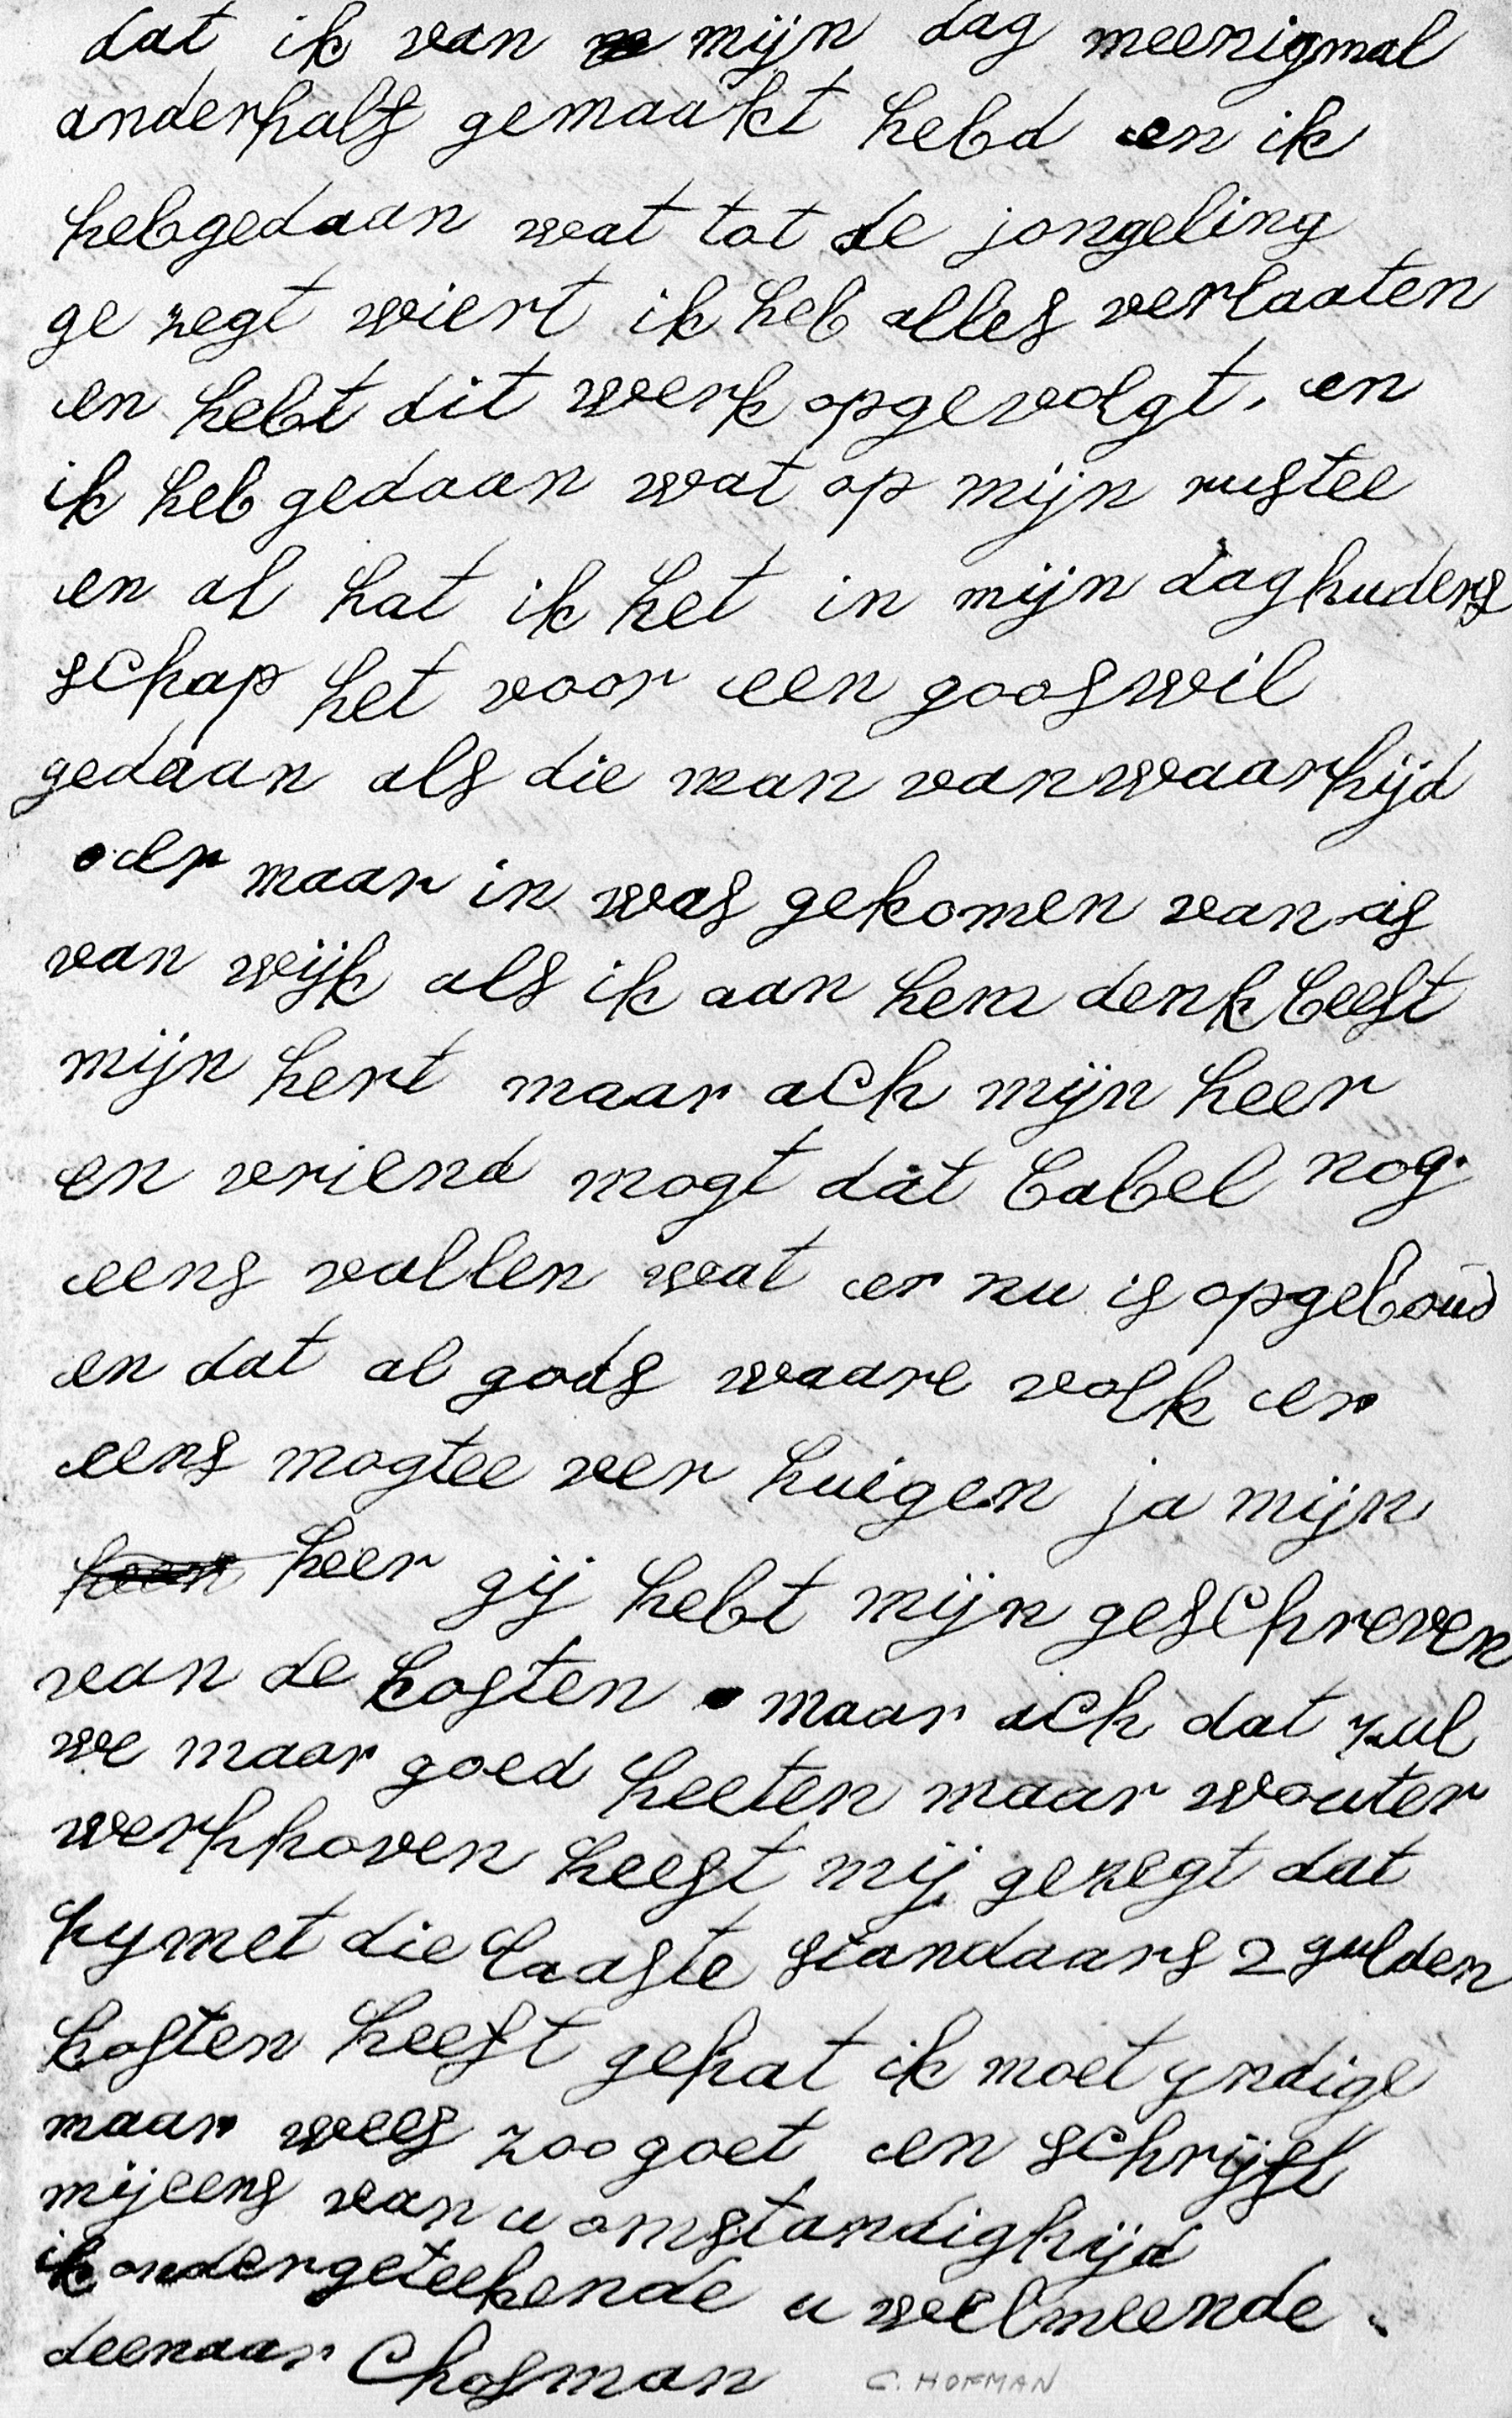 dat ik van mijn dag meenigmal
anderhalf gemaakt hebd en ik
heb gedaan wat tot de jongeling
ge zegt wiert ik heb alles verlaaten
en hebt dit werk opgevolgt, en
ik heb gedaan wat op mijn rustee
en al hat ik het in mijn daghuders
schap het voor een goofwil
gedaan als die man van waarhijd
er maar in was gekomen van as
van wijk als ik aan hem denk beeft
mijn hert maar ach mijn heer
en vriend mogt dat babel nog
eens vallen wat er nu is opgeboud
en dat al gods waare volk er
eens mogtee ver huigen ja mijn
heer gij hebt mijn geschreven
van de kosten maar ach dat zul
we maar goed heeten maar wouter
werkhoven heeft mij gezegt dat
hy met die laaste standaars 2 gulden
kosten heeft gehat ik moet yndige
maar wees zoo goet en schrijft
mij eens van u omstandighijd
ik ondergeteekende u welmeende
deenaar C hofman C. HOFMAN